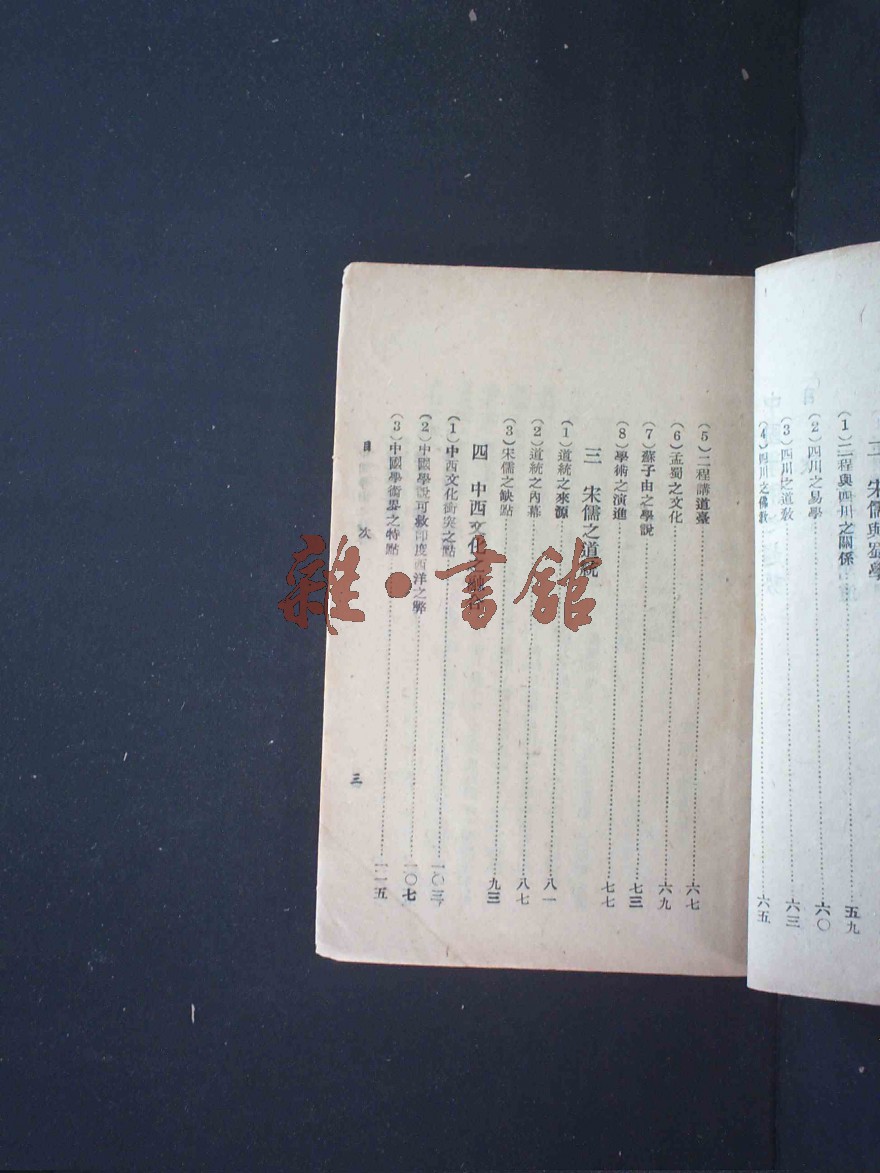 宋儒與蜀學
(1)二程與四川之關係……五九
(2)四川之易學……六〇
(3)四川之道教……六三
(4)四川之佛教……六五
(5)二程講道臺……六七
(6)孟蜀之文化……六九
(7)蘇子由之學說……七三
(8)學術之演進……七七
三 宋儒之道統
(1)道統之來源……八一
(2)道統之內幕……八七
(3)宋儒之缺點……九三
四 中西文化之
(1)中西文化衝突之點……一〇三
(2)中國學說可救印度西洋之弊……一〇七
(3)中國學術界之特點……一一五
目 次
三
雜·書館